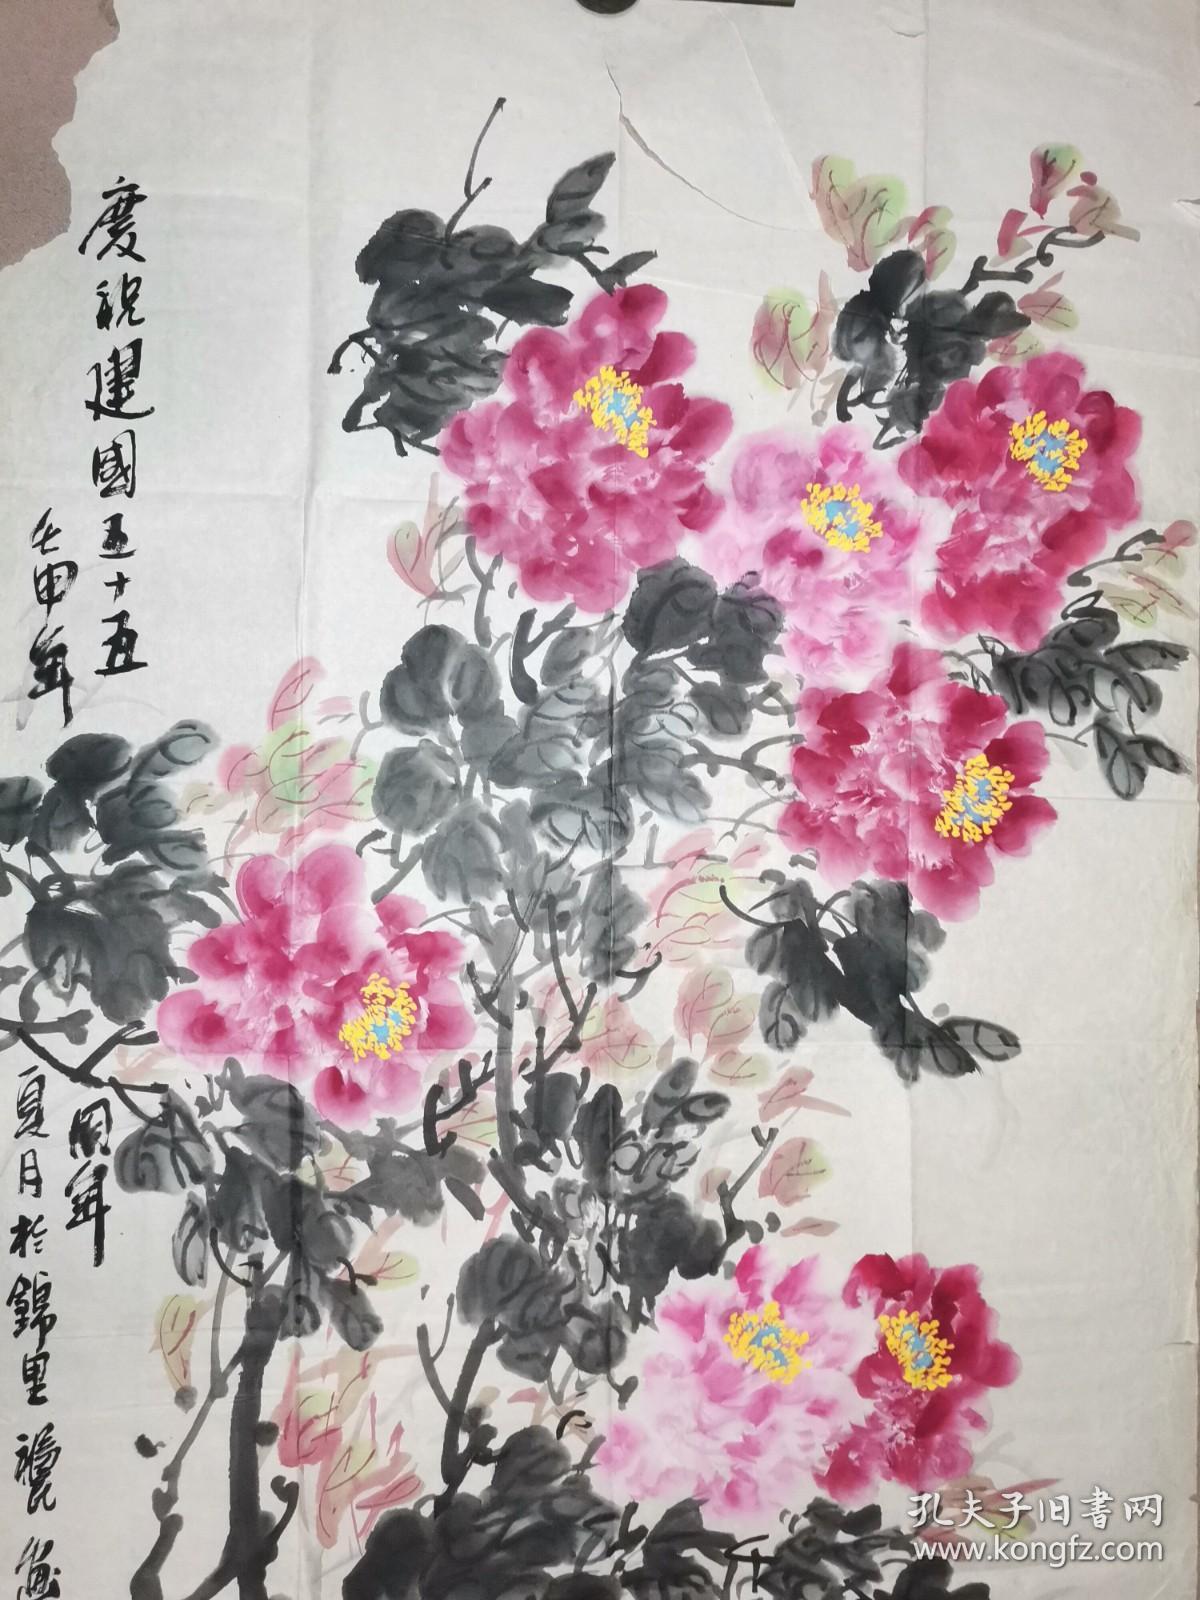 慶祝建國五十五
周年
壬申年
夏月於錦里
畫
孔夫子旧书网
www.kongfz.com